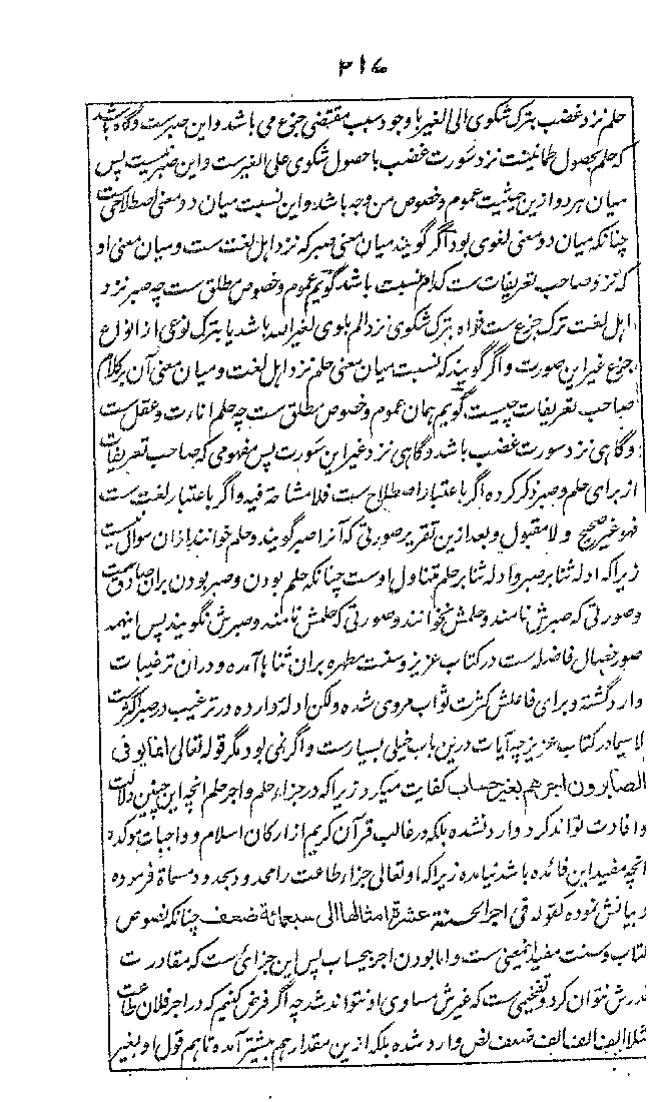 ۲۱۷
حلم نزد غضب بترک شکوی الی الغیر با وجود سبب مقتضی جزع می باشد و این صبر ست و گاه باشد
که حلم بحصول طمانینت نزد سَورت غضب با حصول شکوی علی الغیر ست و این صبر نیست پس
میان هر دو ازین حیثیت عموم و خصوص من وجه باشد و این نسبت میان دو معنی اصطلاحی ست
چنانکه میان دو معنی لغوی بود اگر گویند میان معنی صبر که نزد اهل لغت ست و میان معنی او
که نزد صاحب تعریفات ست کدام نسبت باشد گویم عموم و خصوص مطلق ست چه صبر نزد
اهل لغت ترک جزع ست خواه بترک شکوی نزد الم بلوی لغیر الله باشد یا بترک نوعی از انواع
جزع غیر این صورت و اگر گویند که نسبت میان معنی حلم نزد اهل لغت و میان معنی آن بر کلام
صاحب تعریفات چیست گویم همان عموم و خصوص مطلق ست چه حلم اناءت و عقل ست
و گاهی نزد سورت غضب باشد و گاهی نزد غیر این سَورت پس مفهومی که صاحب تعریفات
از برای حلم و صبر ذکر کرده اگر باعتبار اصطلاح ست فلا مشاحة فیه و اگر باعتبار لغت ست
فهو غیر صحیح و لا مقبول و بعد ازین تقریر صورتی که آنرا صبر گویند و حلم خوانند ازان سوال نیست
زیرا که ادلهٔ ثنا بر صبر و ادلهٔ ثنا بر حلم متناول اوست چنانکه حلم بودن و صبر بودن بران صادق ست
و صورتی که صبرش نامند و حلمش نخوانند و صورتی که حلمش نامند و صبرش نگویند پس اینهمه
صور خصال فاضله ست در کتاب عزیز و سنت مطهره بران ثناها آمده و دران ترغیبات
وارد گشته و برای فاعلش کثرت ثواب مروی شده ولکن ادلهٔ وارده در ترغیب در صبر اکثر ست
لا سیما در کتاب عزیز چه آیات درین باب خیلی بسیار ست و اگر نمی بود مگر قوله تعالی انما یوفی
الصابرون اجرهم بغیر حساب کفایت میکرد زیرا که در جزاء حلم و اجر حلم انچه این چنین دلالت
و افادت تواند کرد وارد نشده بلکه در غالب قرآن کریم از ارکان اسلام و واجبات موکده
انچه مفید این فائده باشد نیامده زیرا که او تعالی جزاء طاعت را محدود بحدود مسماة فرموده
و بیانش نموده کقوله فی اجر الحسنة عشرة امثالها الی سبعمائة ضعف چنانکه نصوص
کتاب و سنت مفید این معنی ست و اما بودن اجر بیحساب پس این جزائی ست که مقادرت
قدرش نتوان کرد و تفخیمی ست که غیرش مساوی او نتواند شد چه اگر فرض کنیم که در اجر فلان طاعت
مثلا الف الف الف ضعف نص وارد شده بلکه ازین مقدار هم بیشتر آمده تا هم قول او بغیر